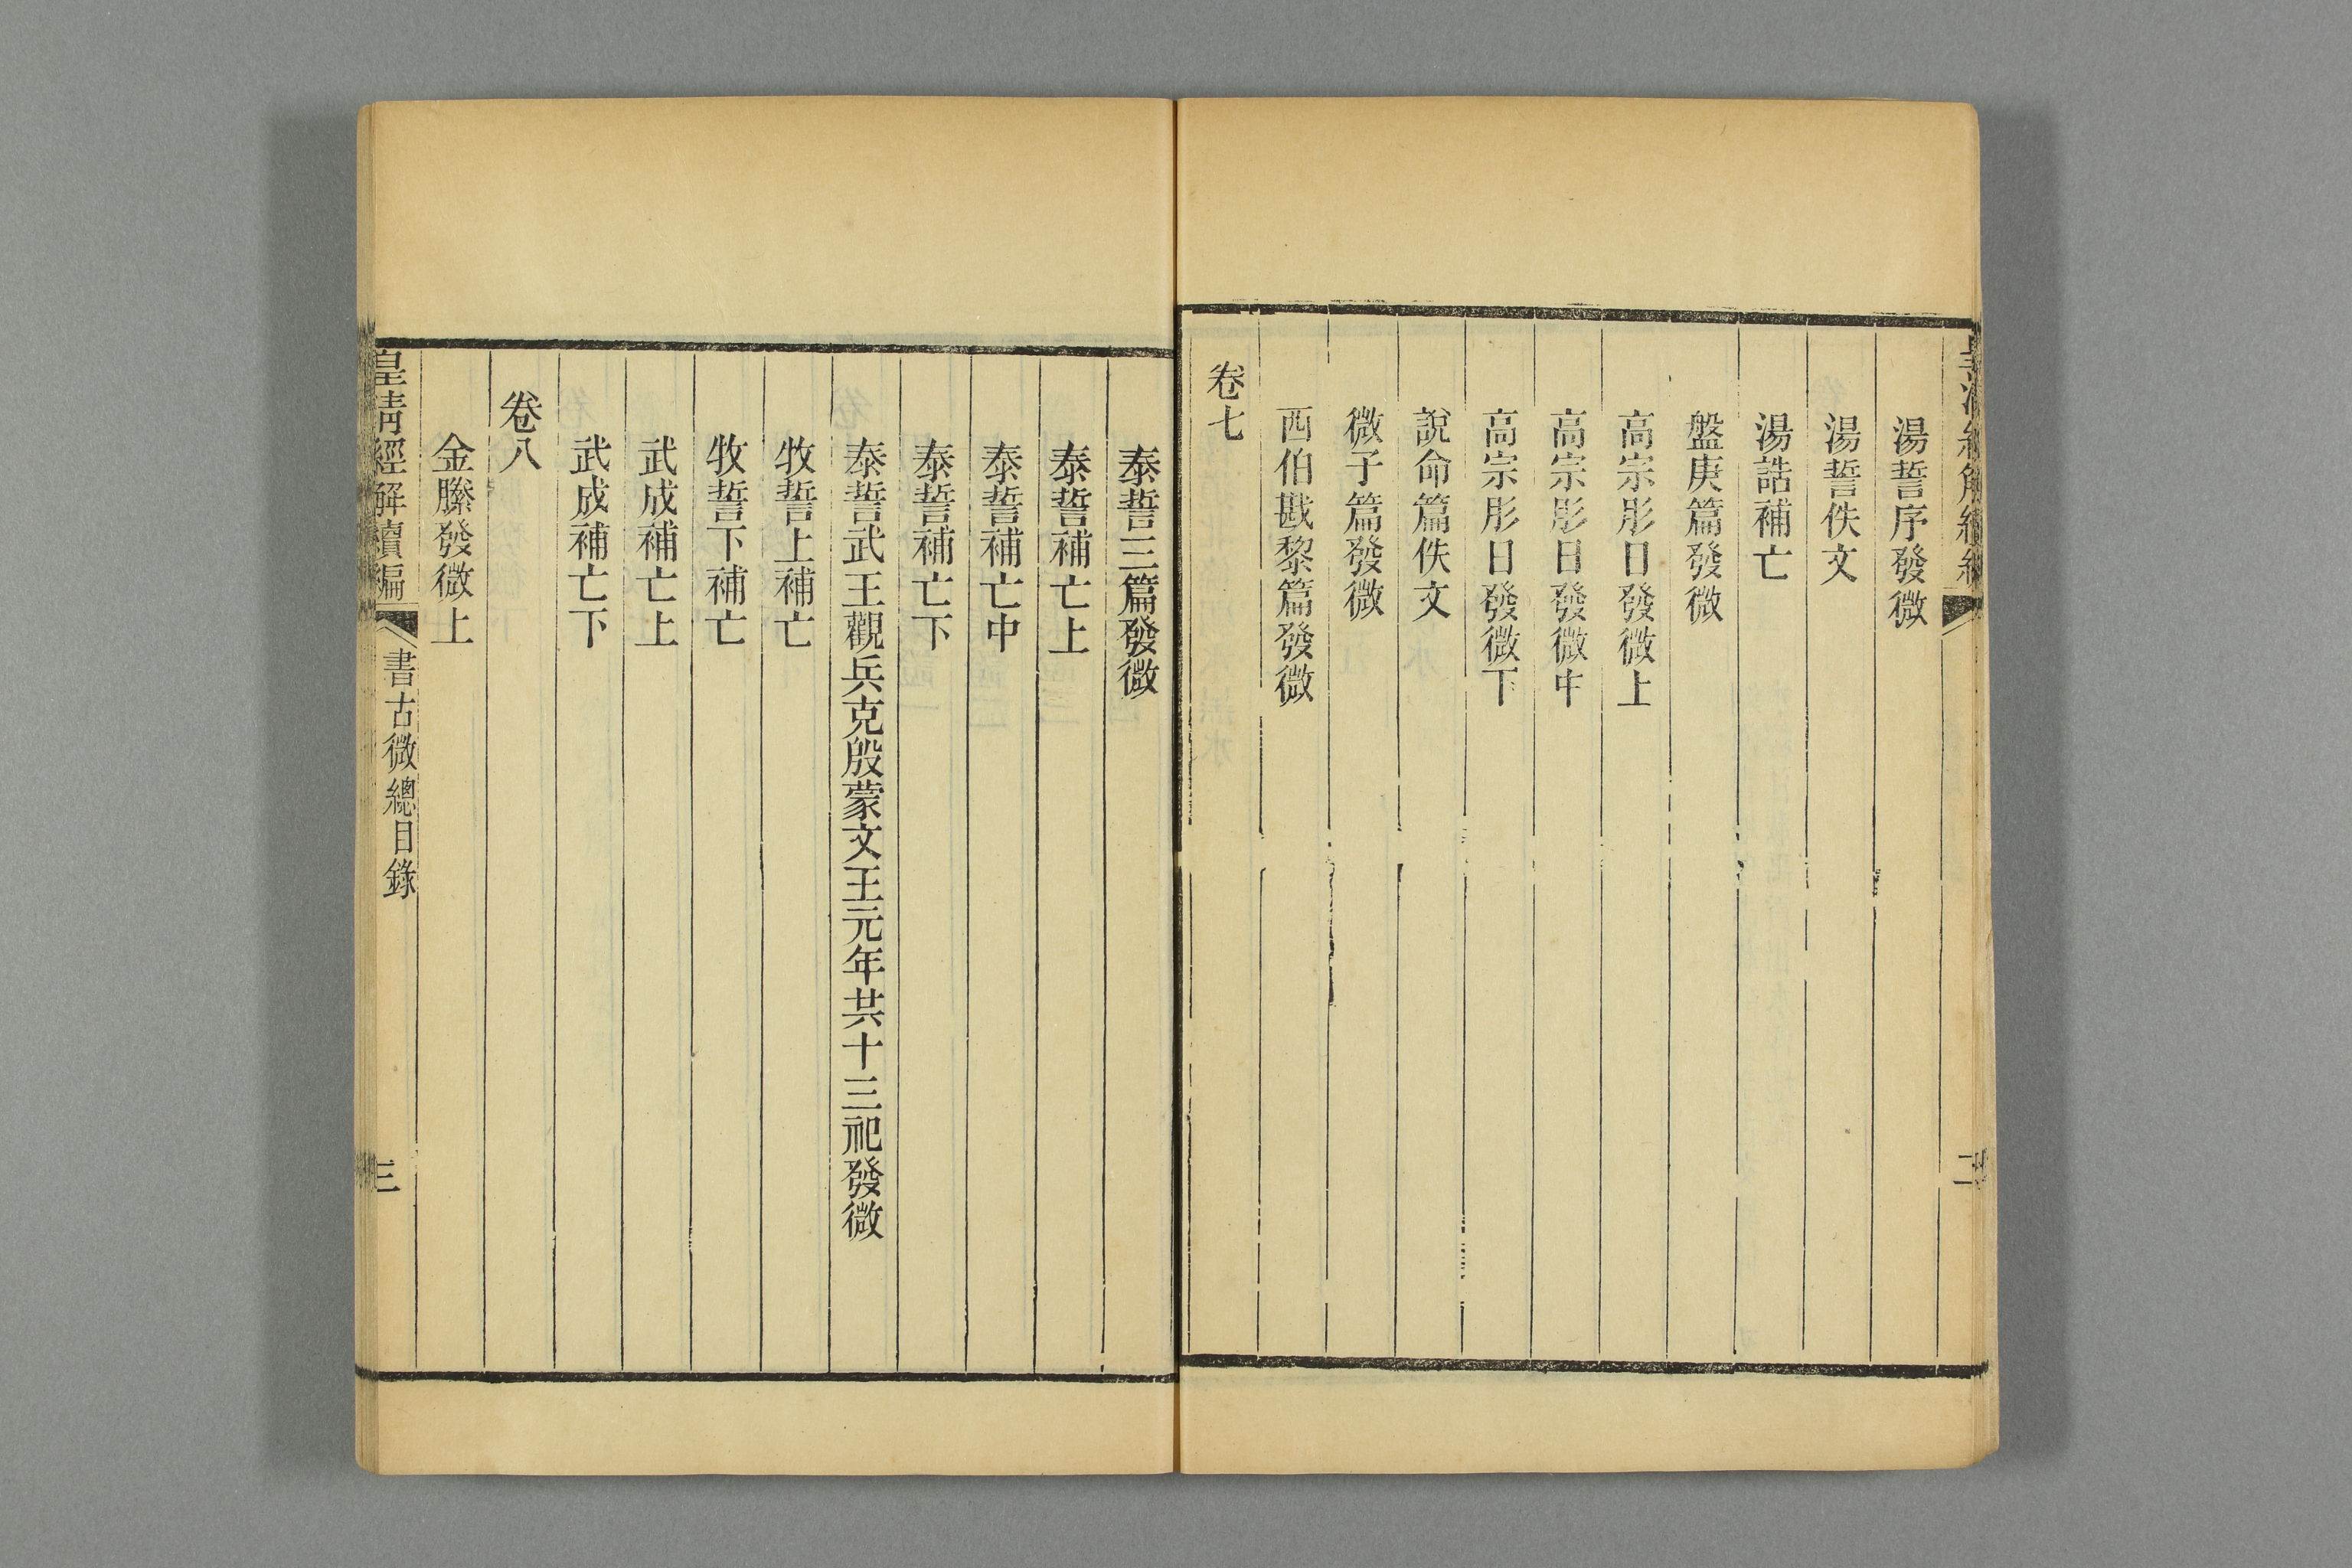 湯誓序發微
湯誓佚文
湯誥補亡
盤庚篇發微
高宗肜日發微上
高宗肜日發微中
高宗肜日發微下
說命篇佚文
微子篇發微
西伯戡黎篇發微
卷七
泰誓三篇發微
泰誓補亡上
泰誓補亡中
泰誓補亡下
泰誓武王觀兵克殷蒙文王元年共十三祀發微
牧誓上補亡
牧誓下補亡
武成補亡上
武成補亡下
卷八
金縢發微上
皇清經解續編 書古微總目錄 三